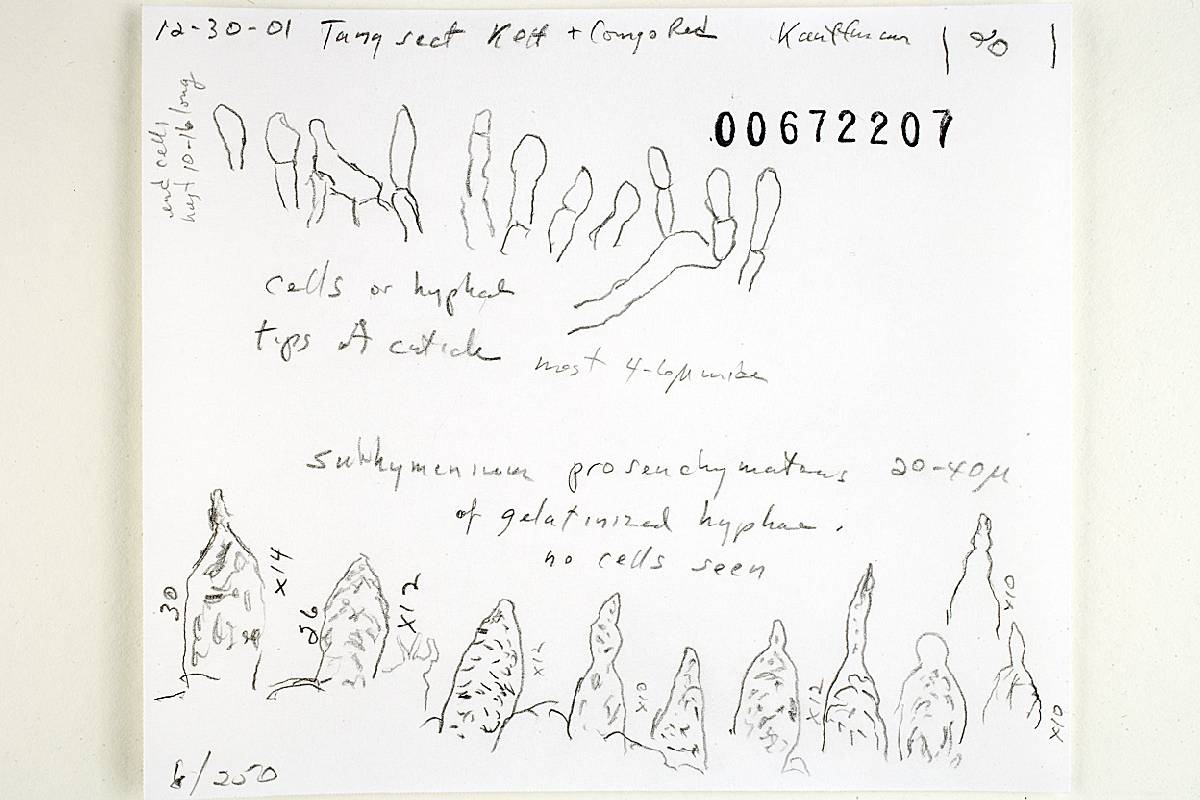 12-30-01 Tang sect KOH + Congo Red Kauffman 20
00672207
end cells
10-16 long
cells or hyphal
tips of cuticle
most 4-6µ wide
Subhymenium prosenchymatous 20-40µ
of gelatinized hyphae.
no cells seen
30
x14
26
x12
x12
x10
x12
x10
x10
6/250